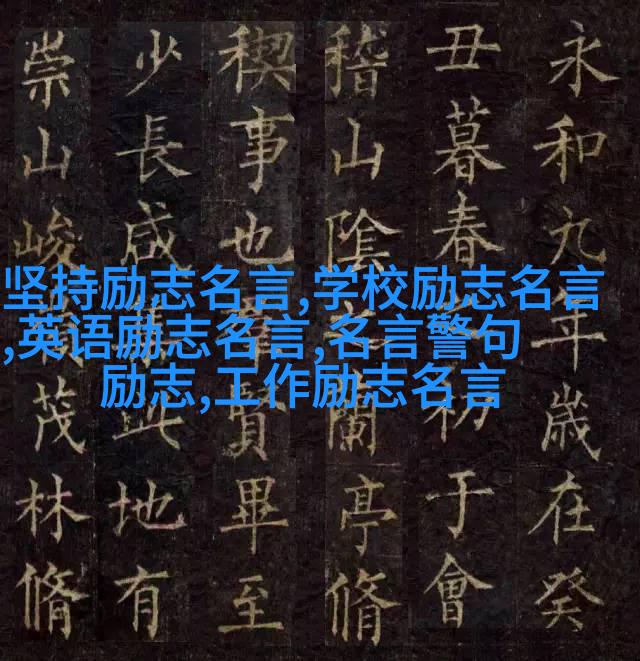 永和九年歲在癸
丑暮春初于會
稽山陰蘭亭脩
稧事也羣賢畢至
少長咸此地有
崇山峻茂林脩
坚持励志名言,学校励志名言
,英语励志名言,名言警句
励志,工作励志名言